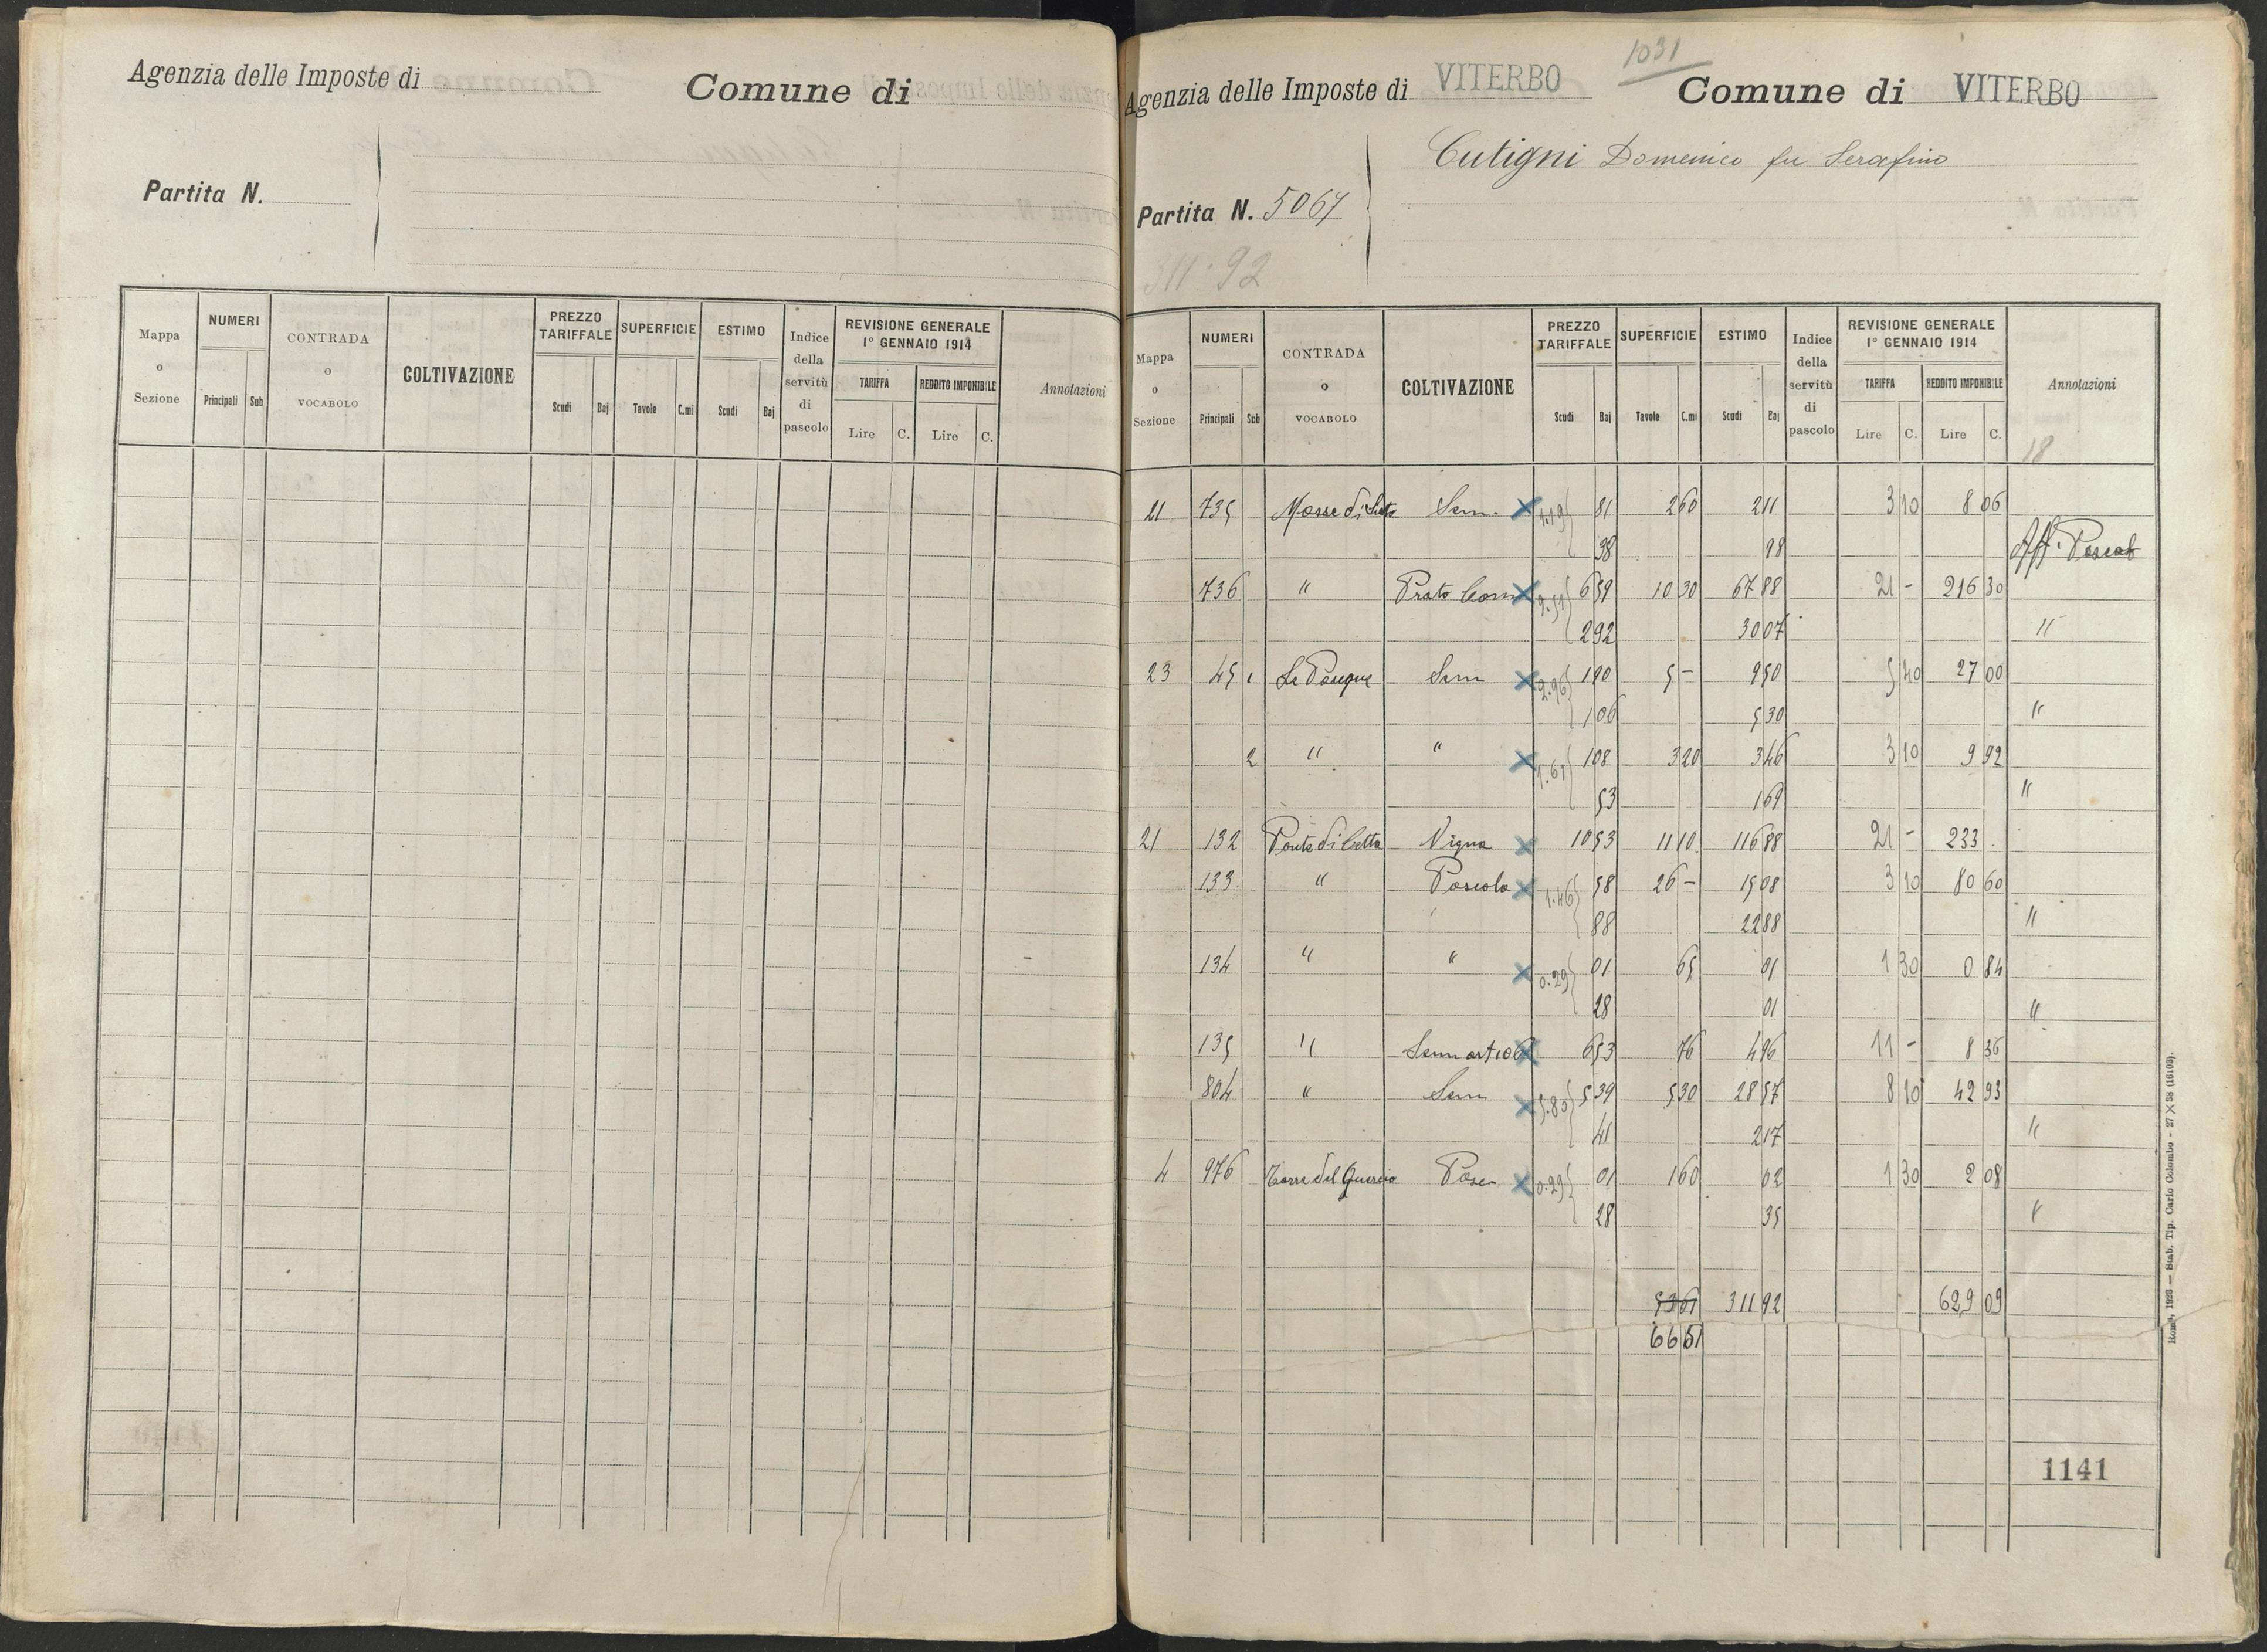 Agenzia delle Imposte di
Comune di
Partita N.
Mappa o Sezione | NUMERI Principali Sub | CONTRADA o VOCABOLO | COLTIVAZIONE | PREZZO TARIFFALE Scudi Baj | SUPERFICIE Tavole C.mi | ESTIMO Scudi Baj | Indice della servitù di pascolo | REVISIONE GENERALE 1° GENNAIO 1914 TARIFFA Lire C. REDDITO IMPONIBILE Lire C. | Annotazioni
1031
Agenzia delle Imposte di VITERBO Comune di VITERBO
Cutigni Domenico fu Serafino
Partita N. 5067
311.92
Mappa o Sezione | NUMERI Principali Sub | CONTRADA o VOCABOLO | COLTIVAZIONE | PREZZO TARIFFALE Scudi Baj | SUPERFICIE Tavole C.mi | ESTIMO Scudi Baj | Indice della servitù di pascolo | REVISIONE GENERALE 1° GENNAIO 1914 TARIFFA Lire C. REDDITO IMPONIBILE Lire C. | Annotazioni
18
21 735 Sem. 1.19 81 2 60 2 11 3 10 8 06
38 98 Aff. Pascol
736 " Prato 9.51 6 59 10 30 67 88 21 - 216 30
2 92 30 07 "
23 45 1 Sem 2.96 1 90 5 - 9 50 5 40 27 00
1 06 5 30 "
2 " " 1.61 1 08 3 20 3 46 3 10 9 92
53 1 69 "
21 132 Vigna 10 53 11 10 116 88 21 - 233
133 " Pascolo 1.46 58 26 - 15 08 3 10 80 60
88 22 88 "
134 " " 0.29 01 65 01 1 30 0 84
28 01 "
135 " 6 53 76 4 96 11 - 8 36
804 " Sem 5.80 5 39 5 30 28 57 8 10 42 93
41 2 17 "
4 976 Pasc 0.29 01 1 60 02 1 30 2 08
28 35 "
53 61 311 92 629 09
66 51
1141
Roma, 1923 — Stab. Tip. Carlo Colombo - 27 X 38 (16103).